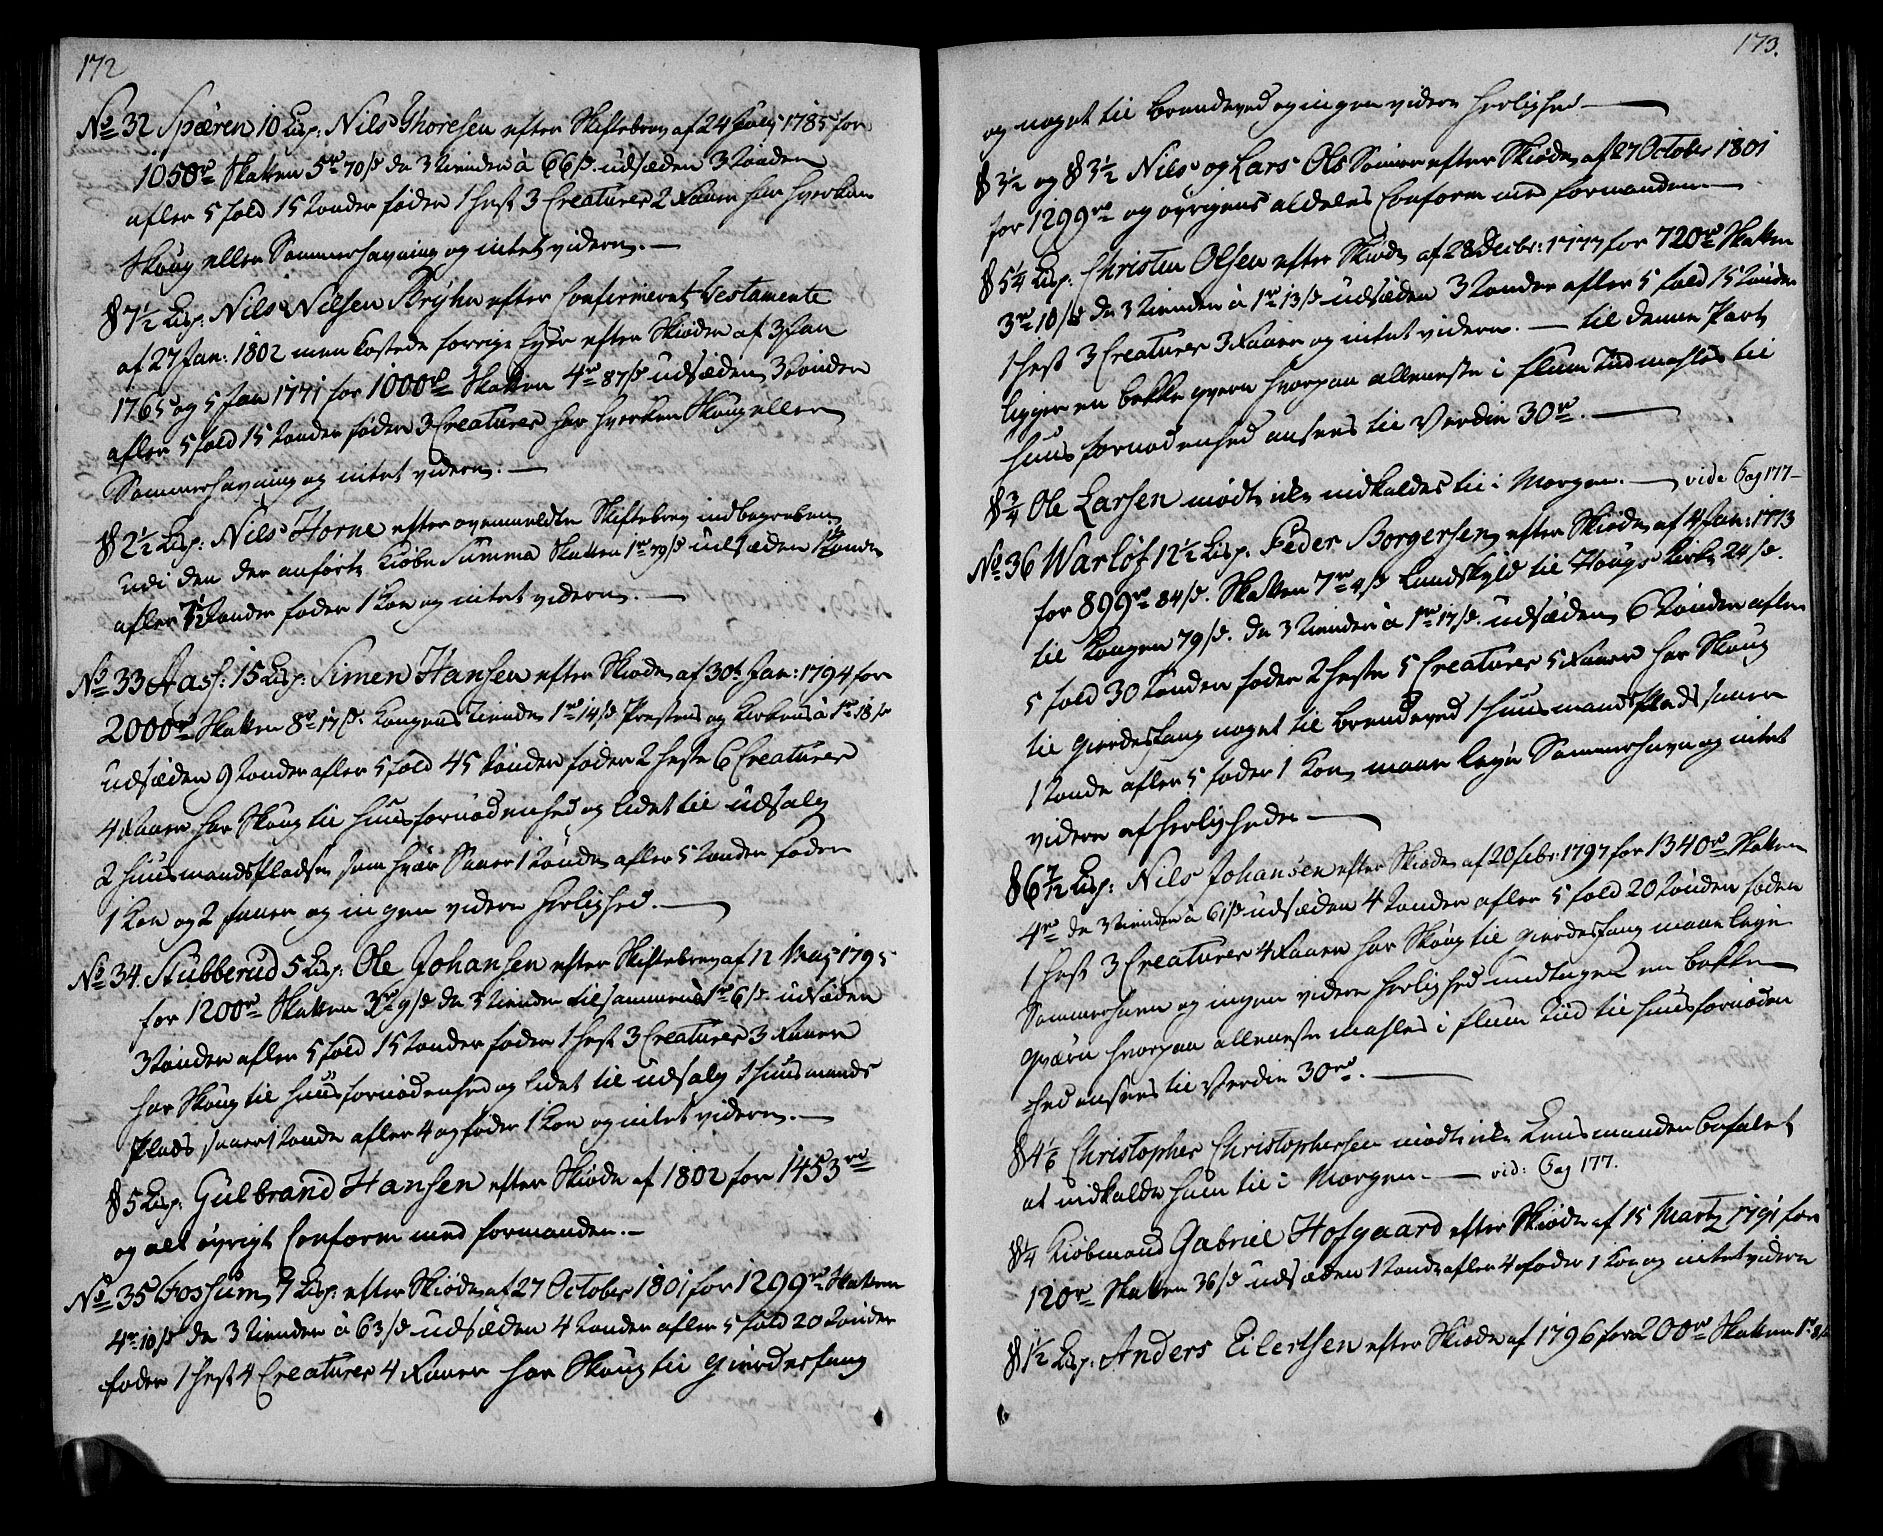 172
No 32 Spæren 10 Lisp: Niels Thoresen efter Skiftebrev af 24 July 1785 for
1050rd Skatten 5rd 70/s de 3 tiender à 66/s udsæden 3 tønder
afler 5 fold 15 tønder føder 1 hest 3 Creaturer 2 Faarer har hverken
Skoug eller Sommerhavning og intet videre. —
§ 7½ Lisp: Niels Nilsen Bryhn efter Confirmeret Testamente
af 27 Jan: 1802 men kostede forrige Eyer efter Skiøder af 3 Jan
1765 og 5 Jan 1771 for 1000rd Skatten 4rd 87/s udsæden 3 tønder
afler 5 fold 15 tønder føder 3 Creaturer har hverken Skoug eller
Sommerhavning og intet videre. —
§ 2½ Lisp: Niels Horne efter ovenmeldte Skiftebrev indbegreben
udi den der anførte Kiøbe Summa Skatten 1rd 79/s udsæden 1½ tønde
afler 7½ tønder føder 1 Koe og intet videre. —
No 33 Aas: 15 Lisp: Simen Hansen efter Skiøde af 30t Jan: 1794 for
2000rd Skatten 8rd 17/s Kongens tiende 1rd 14/s Prestens og Kirkens à 1rd 18/s
udsæden 9 tønder afler 5 fold 45 tønder føder 2 heste 6 Creaturer
4 Faarer har Skoug til huusfornødenhed og lidet til udsalg
2 huusmandspladser som hver saaer 1 tønde afler 5 tønder føder
1 Koe og 2 faarer og ingen videre herlighed. —
No 34. Stubberud 5 Lisp: Ole Johansen efter Skiftebrev af 12 May 1795
for 1200rd Skatten 3rd 9/s de 3 tiender tilsammens 1rd 6/s udsæden
3 tønder afler 5 fold 15 tønder føder 1 hest 3 Creaturer 3 Faarer
har Skoug til huusfornødenhed og lidet til udsalg 1 huusmands
Plads saaer 1 tønde afler 4 og føder 1 Koe og intet videre. —
§ 5 Lisp: Gulbrand Hansen efter Skiøde af 1802 for 1453rd
og alt øvrigt Conform med formanden. —
No 35 Fossum, 7 Lisp: efter Skiøde af 27 October 1801 for 1299rd Skatten
4rd 10/s de 3 tiender à 63/s udsæden 4 tønder afler 5 fold 20 tønder
føder 1 hest 4 Creaturer 4 Faarer har Skoug til gierdesfang
173.
og noget til brendeved og ingen videre herlighed —
§ 3½ og § 3½ Niels og Lars Ols Sønner efter Skiøde af 27 October 1801
for 1299rd og øvrigens aldeles Conform med formanden —
§ 5¼ Lisp: Christen Olsen efter Skiøde af 28 Decbr: 1777 for 720rd Skatten
3rd 10/s de 3 tiender à 1rd 13/s udsæden 3 tønder afler 5 fold 15 tønder
1 hest 3 Creaturer 3 Faarer og intet videre. — til denne Part
ligger en bekke qvern hvorpaa alleneste i flum Tiid mahles til
huus fornødenhed ansees til Verdie 30rd. —
§ ¾ Ole Larsen mødte ikke indkaldes til i Morgen. — vide Pag 177 —
No 36 Warløs 12½ Lisp. Peder Borgersen, efter Skiøde af 4 Jan: 1773
for 899rd 84/s. Skatten 7rd 4/s Landskyld til Hougs Kirke 24/s.
til Kongen 79/s. de 3 tiender à 1rd 17/s. udsæden 6 tønder afler
5 fold 30 tønder føder 2 heste 5 Creaturer 5 Faarer har Skoug
til gierdesfang noget til brendeved 1 huusmandsplads saaer
1 tønde afler 5 føder 1 Koe, maae leye Sommerhavn og intet
videre af herligheder —
§ 6 7/12 Lisp: Niels Johansen efter Skiøde af 20 febr: 1797 for 1340rd Skatten
4rd de 3 tiender à 61/s udsæden 4 tønder afler 5 fold 20 tønder føder
1 hest 3 Creaturer 4 Faarer har Skoug til gierdesfang maae leye
Sommerhavn og ingen videre herlighed undtaget en bekke
qværn hvorpaa alleneste mahles i flum Tiid til huusfornøden
=hed ansees til Verdie 30rd. —
§ 4⅙ Christopher Christophersen mødte ikke Lensmanden befalet
at indkalde ham til i Morgen. — vid: Pag 177.
§ ¼ Kiøbmand Gabriel Hofgaard efter Skiøde af 15 Martz 1791 for
120rd Skatten 36/s udsæden 1 tønde afler 4 føder 1 Koe og intet videre
§ 1½ Lisp: Anders Eilertsen efter Skiøde af 1796 for 200rd Skatten 1rd